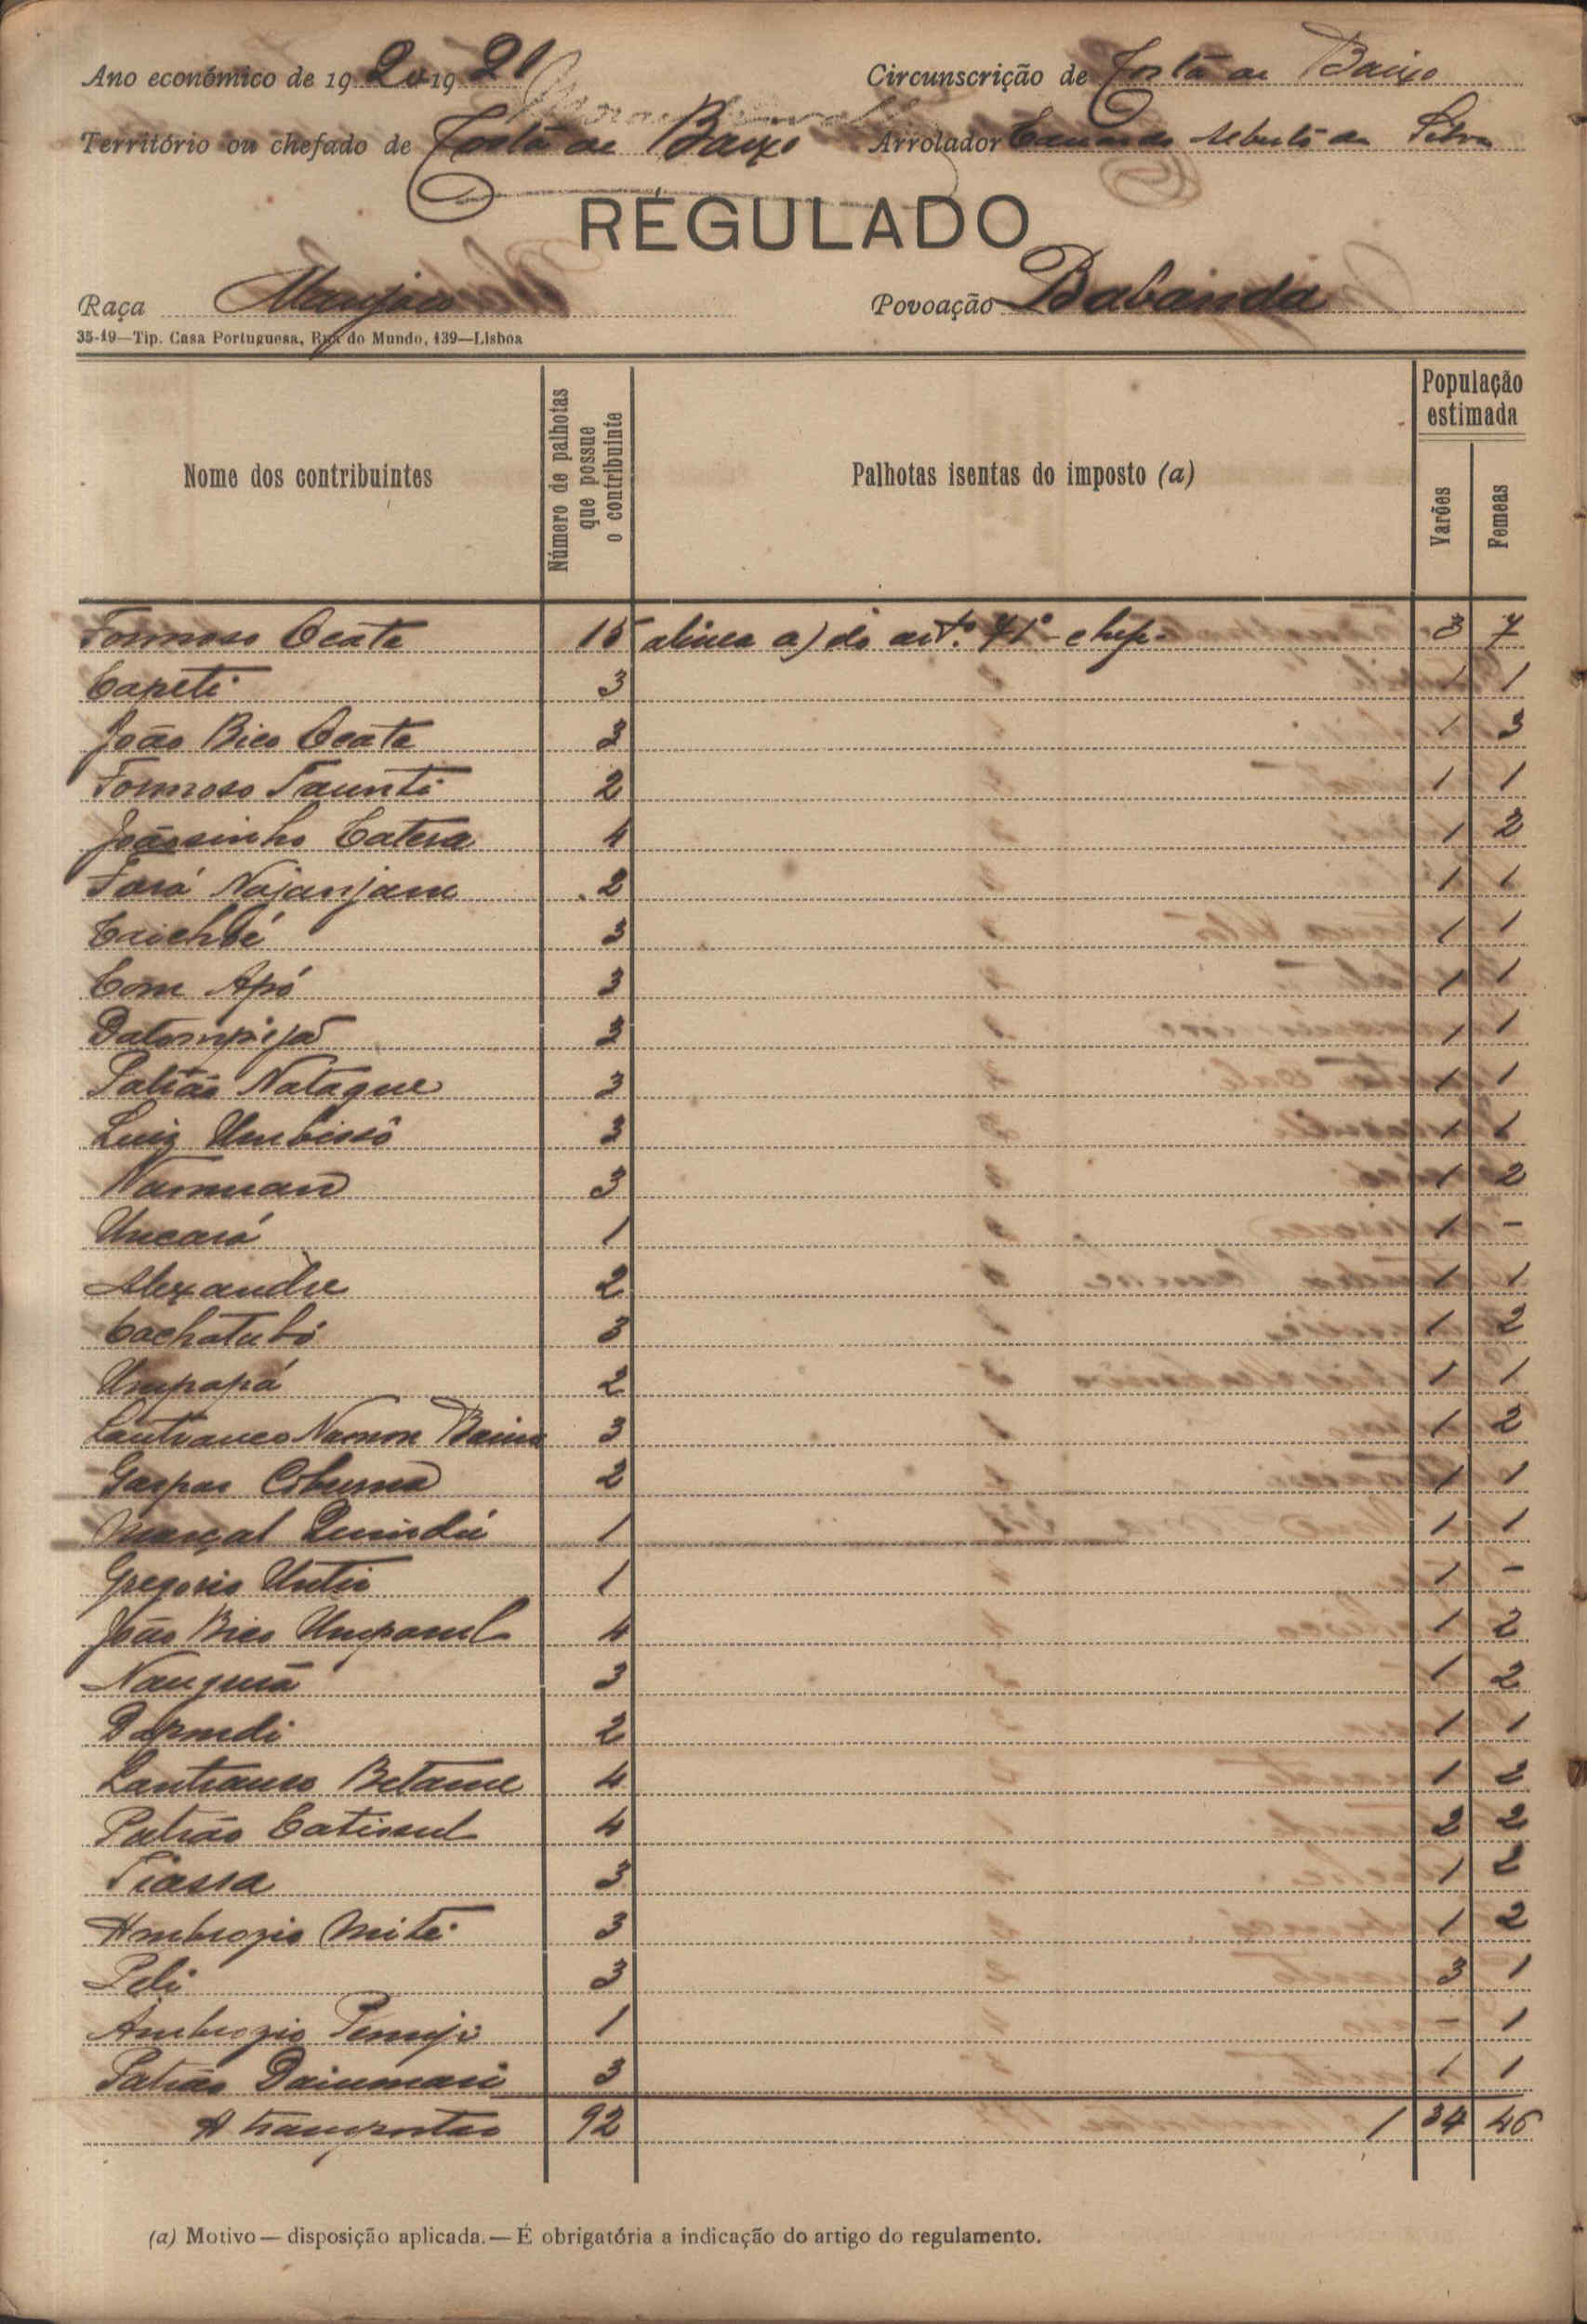 Ano económico de 1920-1921 Circunscrição de Costa de Baixo
Território ou chefado de Costa de Baixo Arrolador Eduardo Alberto da Silva
REGULADO
Raça Manjaco Povoação Babanda
35-19—Tip. Casa Portuguesa, Rua do Mundo, 139—Lisboa
Nome dos contribuintes Número de palhotas que possue o contribuinte Palhotas isentas do imposto (a) População estimada Varões Femeas
Formoso Ocate 15 alinea a) do artº. 41º - chefe - 3 7
Capeti 3 1 1
João Bico Ocate 3 1 3
Formoso Taunti 2 1 1
Joãosinho Catera 4 1 2
Fará Najanjane 2 1 1
Caichbé 3 1 1
Com Apó 3 1 1
Datompijã 3 1 1
Patrão Nataque 3 1 1
Luiz Umbissó 3 1 1
Namuan 3 1 2
Uncará 1 1 -
Alexandre 2 1 1
Cachatubó 3 1 2
Umpapá 2 1 1
Lautranco Namon Baina 3 1 2
Gaspar 2 1 1
Marçal Quindú 1 1 1
Gregorio Untis 1 1 -
João Bico Umpanul 4 1 2
Nanquiã 3 1 2
2 1 1
Lantranco Betame 4 1 2
Patrão Catissul 4 2 2
Tiassa 3 1 2
Ambrozio Mité 3 1 2
Peli 3 3 1
Ambrozio 1 - 1
Patrão Dainmari 3 1 1
A transportar 92 1 34 46
(a) Motivo — disposição aplicada. — É obrigatória a indicação do artigo do regulamento.